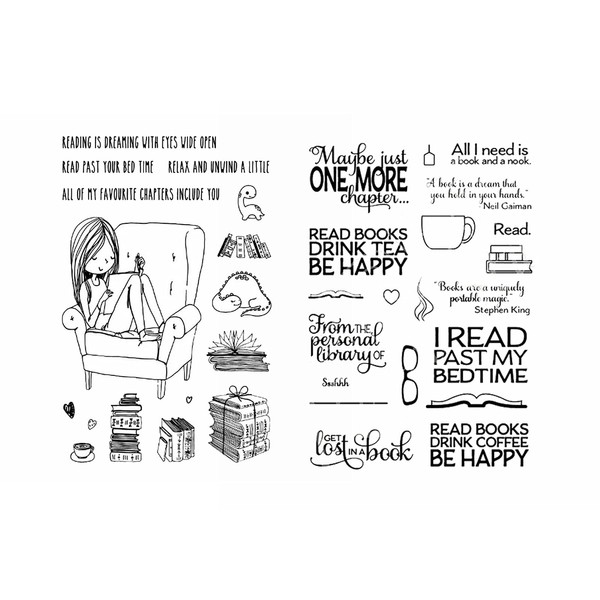 READING IS DREAMING WITH EYES WIDE OPEN
READ PAST YOUR BED TIME RELAX AND UNWIND A LITTLE
ALL OF MY FAVOURITE CHAPTERS INCLUDE YOU
Maybe just
ONE MORE
chapter...
All I need is
a book and a nook.
"A book is a dream that
you hold in your hands."
Neil Gaiman
READ BOOKS
DRINK TEA
BE HAPPY
Read.
"Books are a uniquely
portable magic."
Stephen King
From THE
personal
library OF
Ssshhh
I READ
PAST MY
BEDTIME
GET
lost IN A book
READ BOOKS
DRINK COFFEE
BE HAPPY